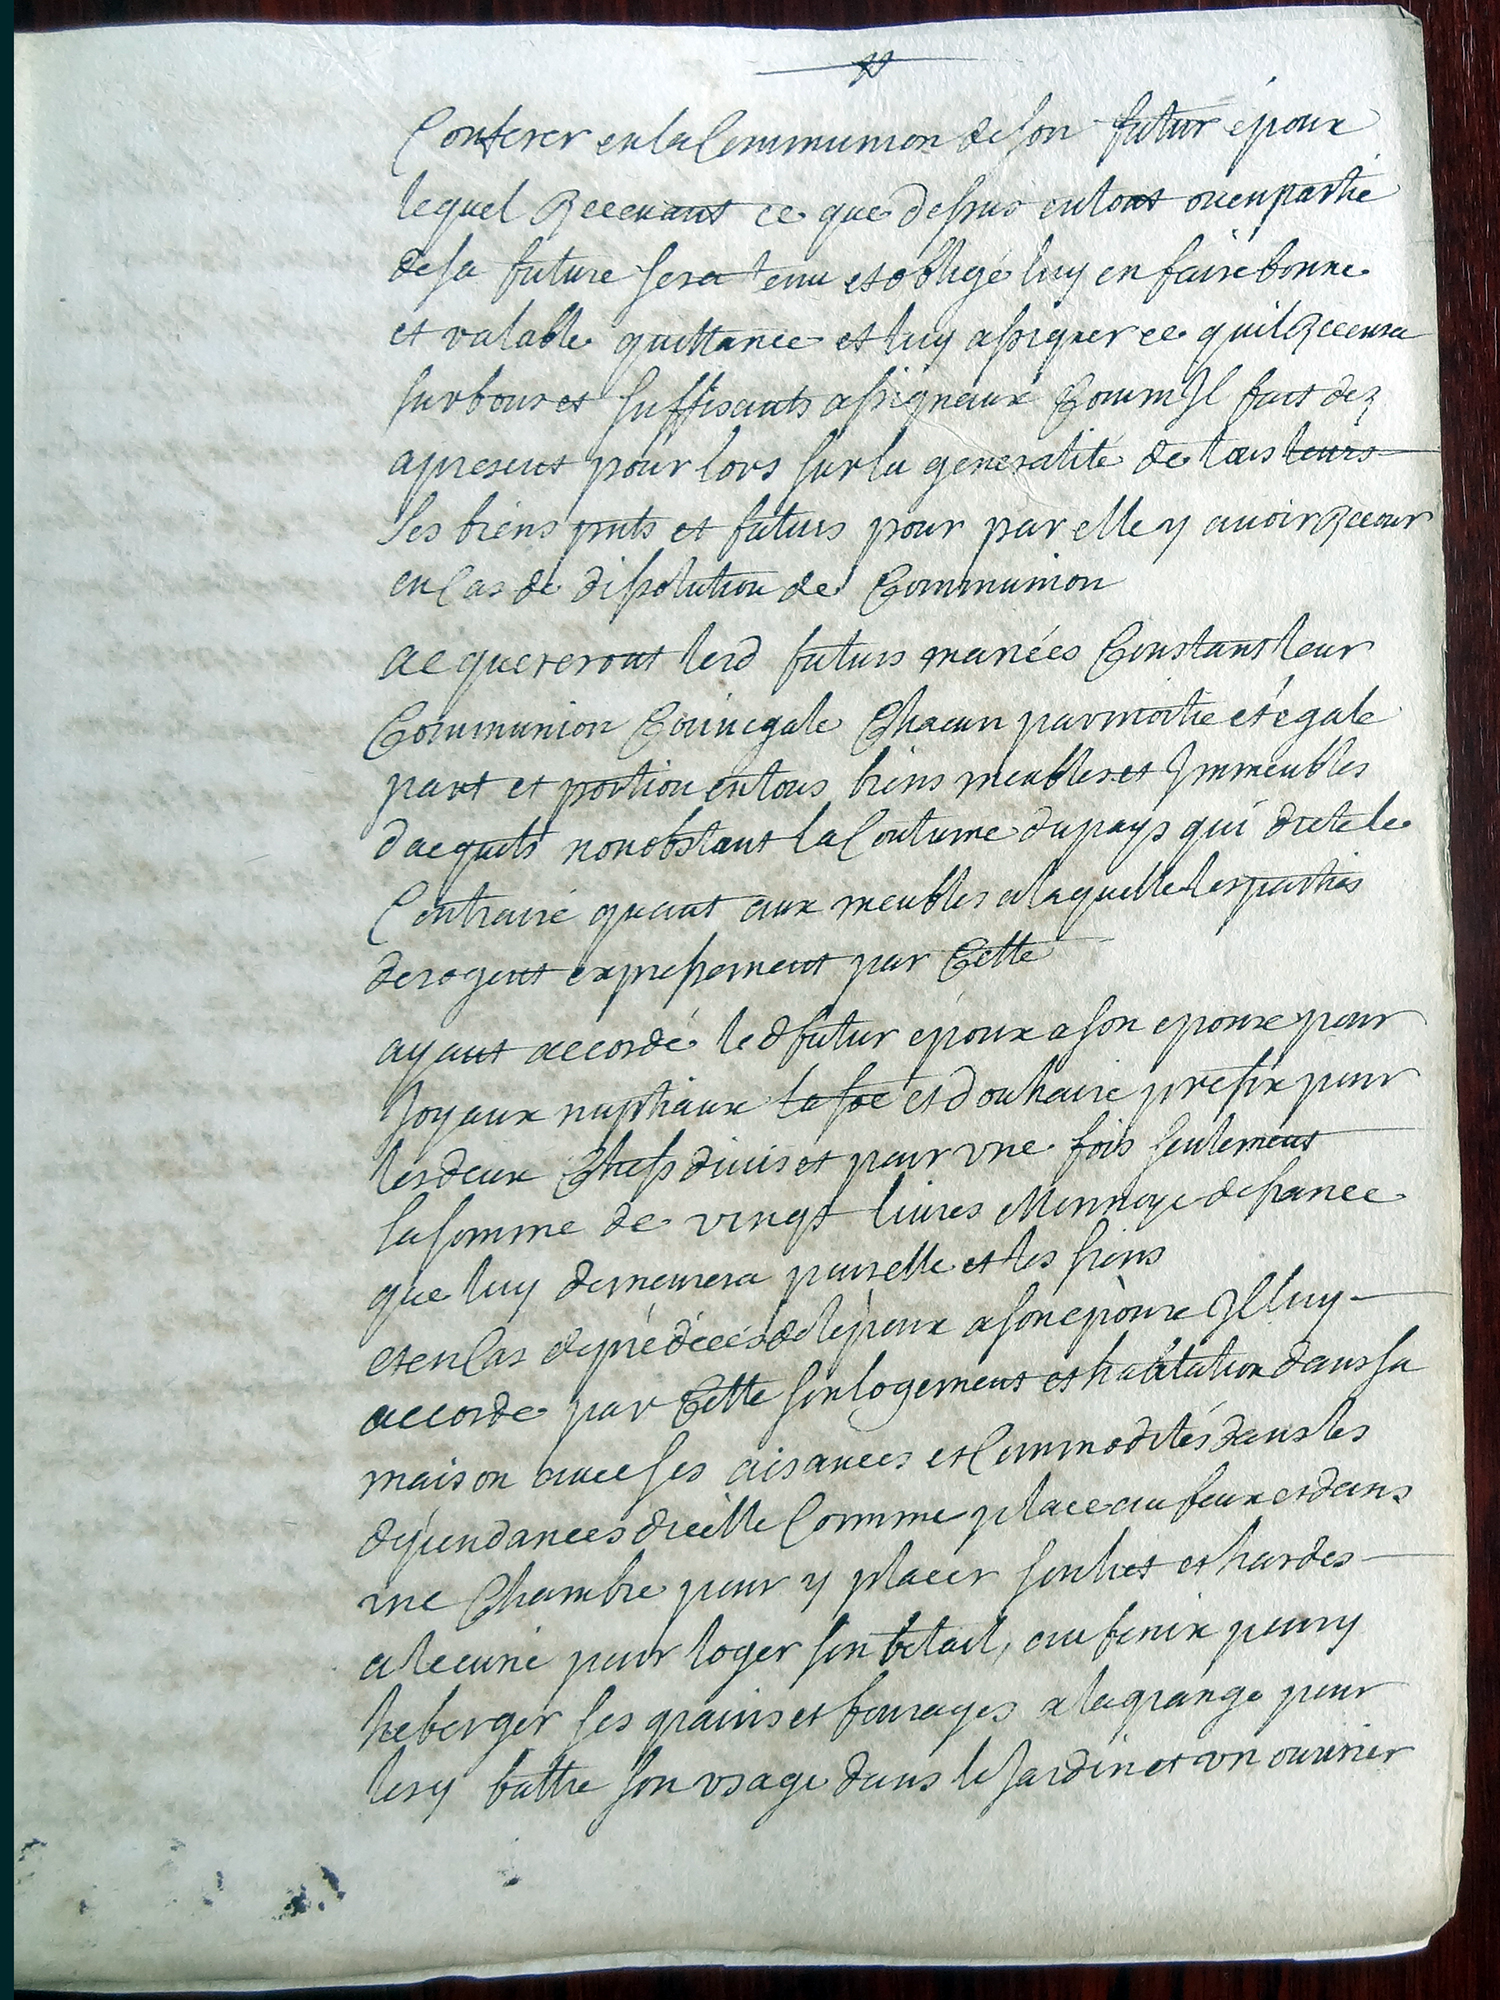 Conferer en la Communion de son futur époux
lequel Recevant ce que dessus en tout ou en partie
de sa future sera tenu et obligé luy en faire bonne
et valable quittance et luy assigner ce quil Recevra
sur bons et suffisants assignaux Comm Il fait dez
apresent pour lors sur la generalité de tous leurs
Ses biens pnts et futurs pour par elle y avoir Recour
en Cas de dissolution de Communion
acquereront lesd futurs mariées Constant leur
Communion Coinégale Chacun par moitie et égale
part et portion en tous biens meubles et Immeubles
dacquets nonobstant la Coutume du pays qui dicte le
Contraire quant aux meubles a laquelle les parties
derogent expressement par Cette
ayant accordé led futur époux a son epouse pour
Joyaux nuptiaux et douhaire prefix pour
les deux Chefs divis et pour vne fois seulement
la somme de vingt livres Monnoye de france
que luy demeurera pour elle et les siens
et en Cas de prédécés de lépoux a son epouse Il luy
accorde par Cette son logement et habitation dans sa
maison avec ses aisances et Commodités dans les
dépendances dicelle Comme place au feux et dans
vne Chambre pour y placer son lict et hardes
a lecurie pour loger son bétail, au fenix pour y
heberger ses grains et fourages a la grange pour
les y battre son vsage dans le Jardin et vn ouvrier